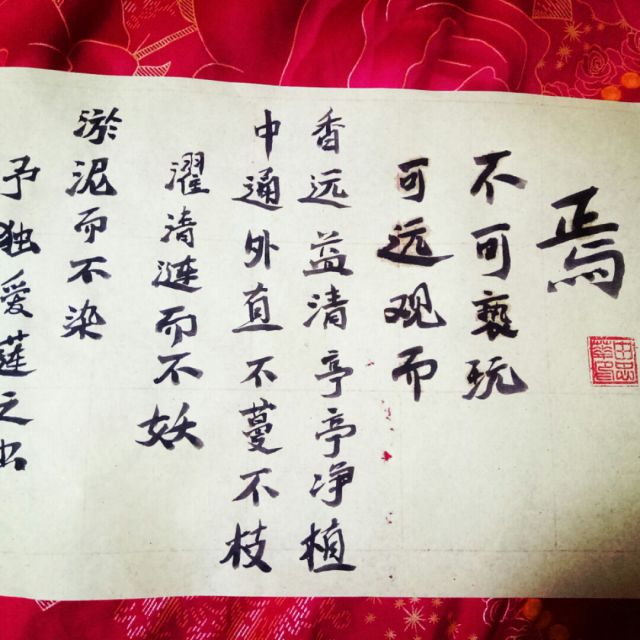 予独爱莲之出
淤泥而不染
濯清涟而不妖
中通外直不蔓不枝
香远益清亭亭净植
可远观而
不可亵玩
焉